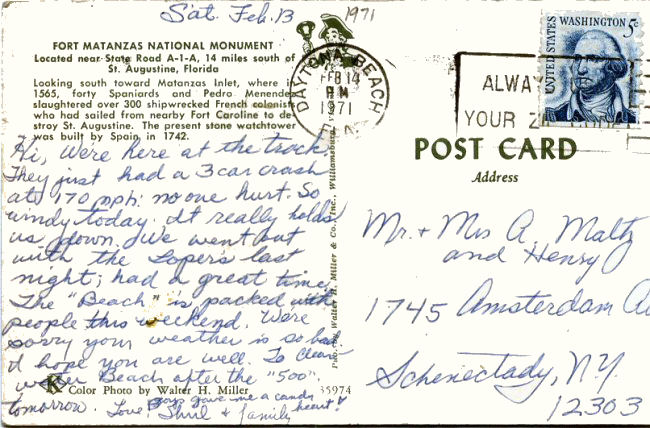 Sat. Feb. 13 1971
FORT MATANZAS NATIONAL MONUMENT
Located near State Road A-1-A, 14 miles south of
St. Augustine, Florida
Looking south toward Matanzas Inlet, where in
1565, forty Spaniards and Pedro Menendez
slaughtered over 300 shipwrecked French colonists
who had sailed from nearby Fort Caroline to de-
stroy St. Augustine. The present stone watchtower
was built by Spain in 1742.
Hi, We're here at the track
They just had a 3 car crash
at 170 mph. no one hurt. So
windy today. It really holds
us down. We went out
with the Loper's last
night; had a great time.
The "Beach" is packed with
people this weekend. We're
sorry your weather is so bad
I hope you are well. To Clear-
water Beach after the "500".
tomorrow.
boys gave me a candy
heart!
Love, & family
K Color Photo by Walter H. Miller 35974
Walter H. Miller & Co., Inc., Williamsburg
DAYTONA BEACH
FEB 14
PM
1971
ALWAY
YOUR
UNITED STATES
WASHINGTON 5c
POST CARD
Address
Mr. + Mrs A. Maltz
and Henry
1745 Amsterdam
Schenectady, N.Y.
12303